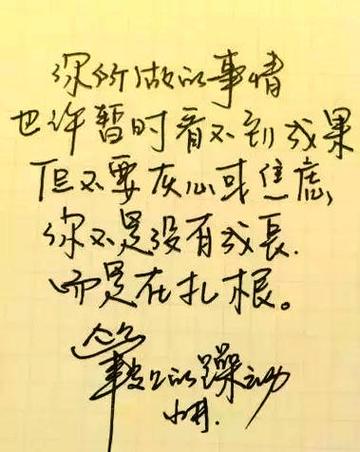 你所做的事情
也许暂时看不到成果
但不要灰心或焦虑,
你不是没有成長.
而是在扎根。
笔尖上的躁动